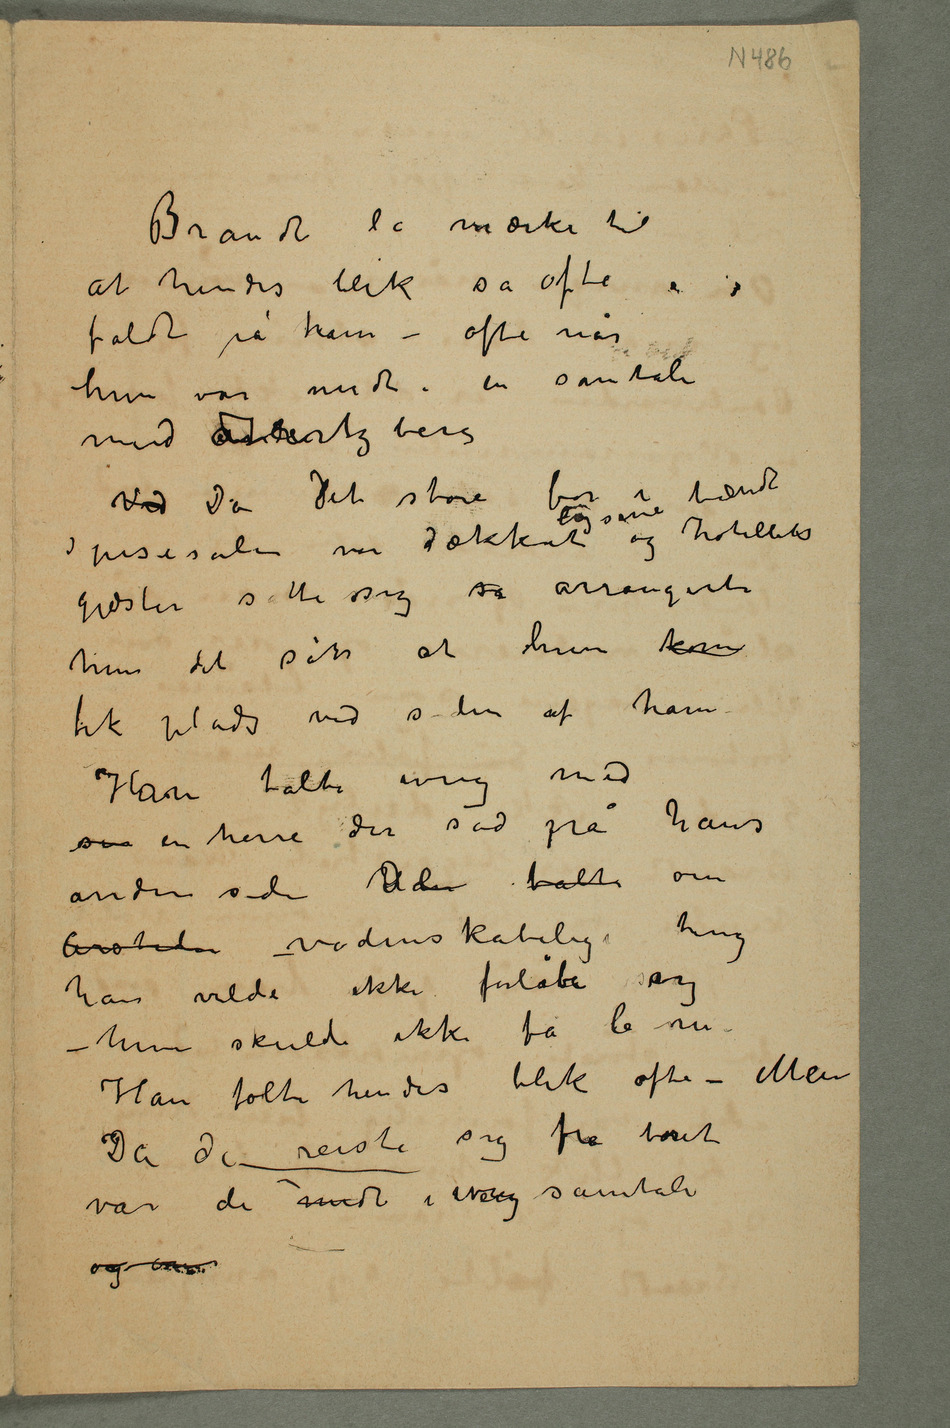 N 486
Brandt la mærke til
at hendes blik så ofte
faldt på ham – ofte når
hun var midt i en samtale
med berg
Ved Da Det store bor i
lysene tændt
spisesalen var dækket og hotellets
gjæster satte sig så arrangerte
hun det såss at hun kom
fik plads ved siden af ham
Han talte ivrig med
en herre der sad på hans
anden side Uden talte om
videnskabelige ting
han vilde ikke forlåbe sig
– hun skulde ikke få le m
Han følte hendes blik ofte – Men
Da de reiste sig fra boret
var de midt i ivrig samtale
og